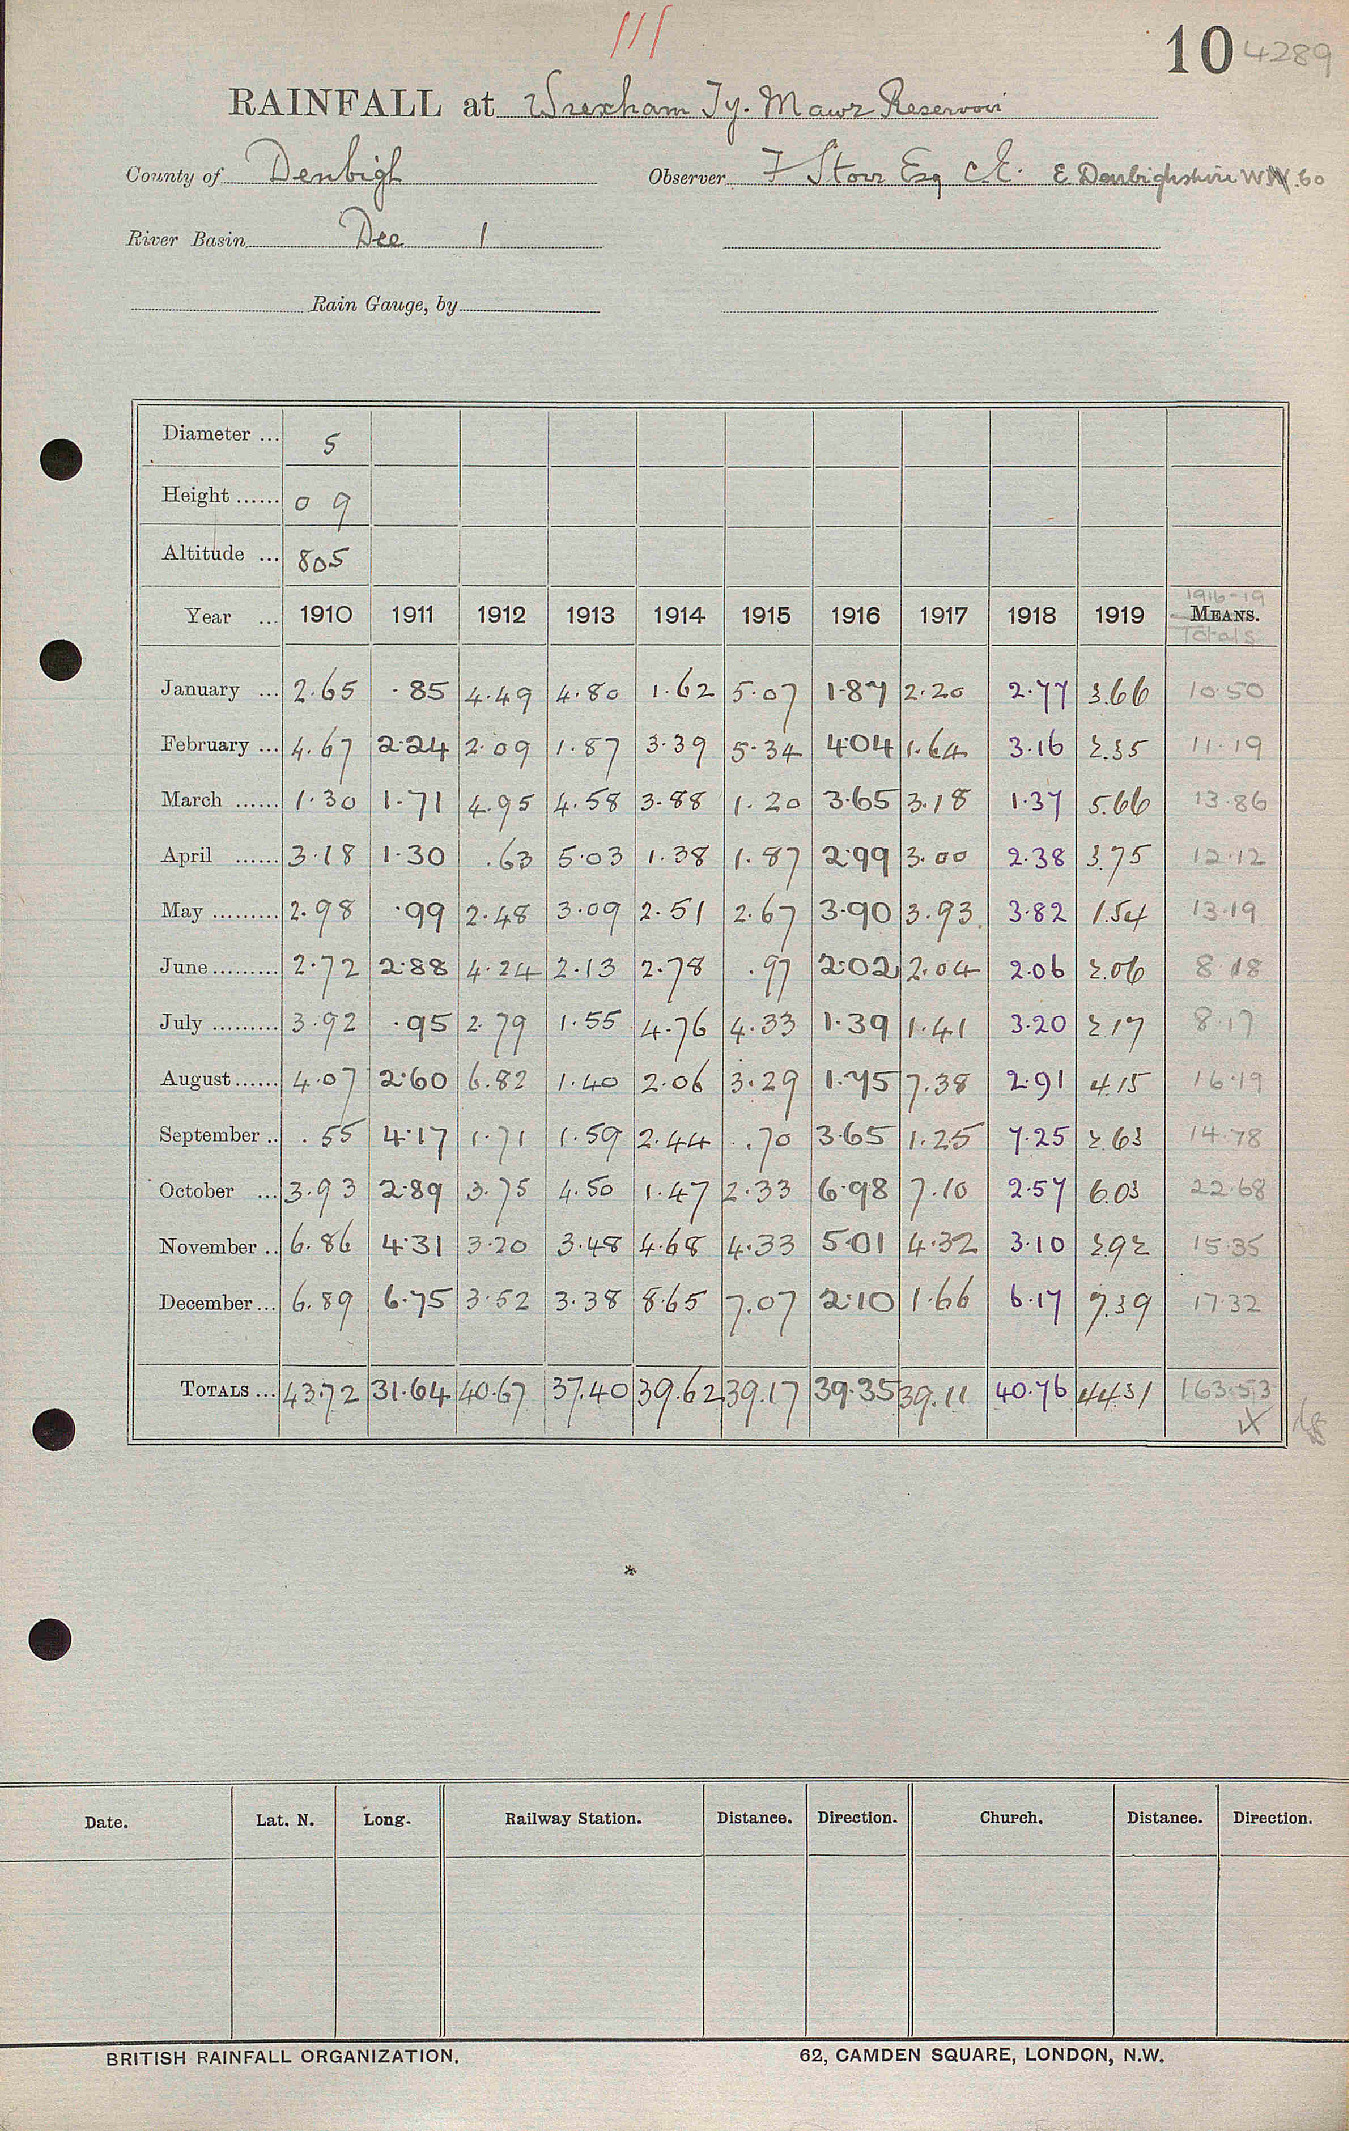 111
10 4289
RAINFALL at Wrexham Ty. Mawr Reservoir
County of Denbigh Observer F Storr Esq C.E. E Denbighshire W.W. 60
River Basin Dee 1
Rain Gauge, by
Diameter ... 5
Height ...... 0 9
Altitude ... 805
1916-19
Year ... 1910 1911 1912 1913 1914 1915 1916 1917 1918 1919 MEANS.
Totals
January ... 2.65 .85 4.49 4.80 1.62 5.07 1.87 2.20 2.77 3.66 10.50
February ... 4.67 2.24 2.09 1.87 3.39 5.34 4.04 1.64 3.16 2.35 11.19
March ...... 1.30 1.71 4.95 4.58 3.88 1.20 3.65 3.18 1.37 5.66 13.86
April ...... 3.18 1.30 .63 5.03 1.38 1.87 2.99 3.00 2.38 3.75 12.12
May ......... 2.98 .99 2.48 3.09 2.51 2.67 3.90 3.93 3.82 1.54 13.19
June ......... 2.72 2.88 4.24 2.13 2.78 .97 2.02 2.04 2.06 2.06 8.18
July ......... 3.92 .95 2.79 1.55 4.76 4.33 1.39 1.41 3.20 2.17 8.17
August ...... 4.07 2.60 6.82 1.40 2.06 3.29 1.75 7.38 2.91 4.15 16.19
September .. .55 4.17 1.71 1.59 2.44 .70 3.65 1.25 7.25 2.63 14.78
October ... 3.93 2.89 3.75 4.50 1.47 2.33 6.98 7.10 2.57 6.03 22.68
November .. 6.86 4.31 3.20 3.48 4.68 4.33 5.01 4.32 3.10 2.92 15.35
December ... 6.89 6.75 3.52 3.38 8.65 7.07 2.10 1.66 6.17 7.39 17.32
TOTALS ... 43.72 31.64 40.67 37.40 39.62 39.17 39.35 39.11 40.76 44.31 163.53
*
Date. Lat. N. Long. Railway Station. Distance. Direction. Church. Distance. Direction.
BRITISH RAINFALL ORGANIZATION. 62, CAMDEN SQUARE, LONDON, N.W.